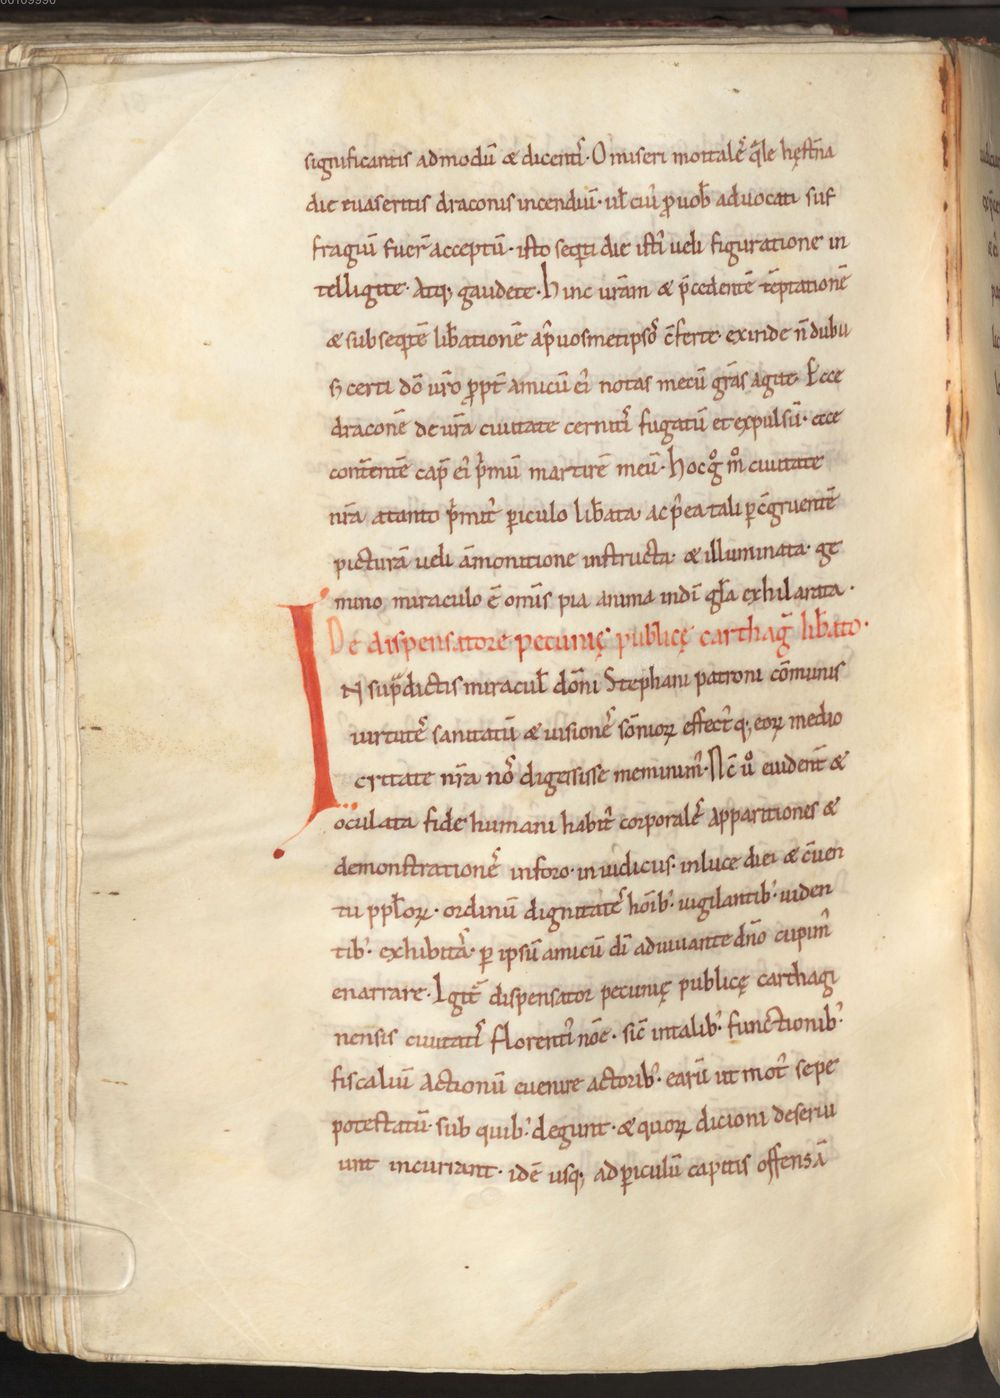 significantis admodū & dicentᷤ· O miseri mortalēˢ q̄le hęst̄na
die euaseritis draconis incendiū· ut̄ cuiꝰ ꝓ uob̄ aduocati suf
fragiū fuer̄ acceptū· isto seq̄ti die istiꝰ ueli figuratione in
telligite· Atq; gaudete· hinc ur̄am & p̄cedentē tēptationē
& subseq̄tē lib̄ationē ap̄ uosmetipsoˢ c̄ferte· exinde n̄ dubii
s̄ certi dō ur̄o ꝓpt̄ amicū eiꝰ notas mecū gr̄as agite· Ecce
draconē de ur̄a ciuitate cernitꝰ fugatū et expulsū· ecce
conterentē cap̄ eiꝰ p̄mū martirē meū· hoc g̊ m̊ ciuitate
nr̄a a tanto p̄mitꝰ ꝑiculo lib̄ata· ac p̄ea tali ꝑ c̄gruentē
picturā ueli āmonitione instructa· & illuminata· ge
mino miraculo ē omīs pia anima indiꝰ gl̄a exhilarata·
De dispensatore pecunię publicę carthaḡ lib̄ato·
IN sup̄dictis miracul̄ dōni Stephani patroni cōmunis
uirtutēˢ sanitatū & uisionēˢ sōnioꝝ effectꝰq; eoꝝ medio
critate nr̄a noˢ digessisse meminimꝰ· Nc̄ ů euidentē &
oculata fide humani habitꝰ corporalēˢ apparitiones &
demonstrationēˢ in foro· in iudiciis· in luce diei & c̄uen
tu ppl̄oꝝ· ordinū dignitatēˢ hōibꝰ· uigilantibꝰ· uiden
tibꝰ· exhibitāˢ· ꝑ ipsū amicū dī adiuuante dn̄o cupimꝰ
enarrare· Igit̄ dispensator pecunię publicę carthagi
nensis ciuitatᷤ florentiꝰ nōe· sic̄ in talibꝰ· functionibꝰ·
fiscaliū actionū euenire actoribꝰ· earū ut motꝰ sepe
potestatū· sub quibꝰ· degunt· & quoꝝ dicioni deserui
unt incurrant· idē usq; ad ꝑiculū capitis offensā